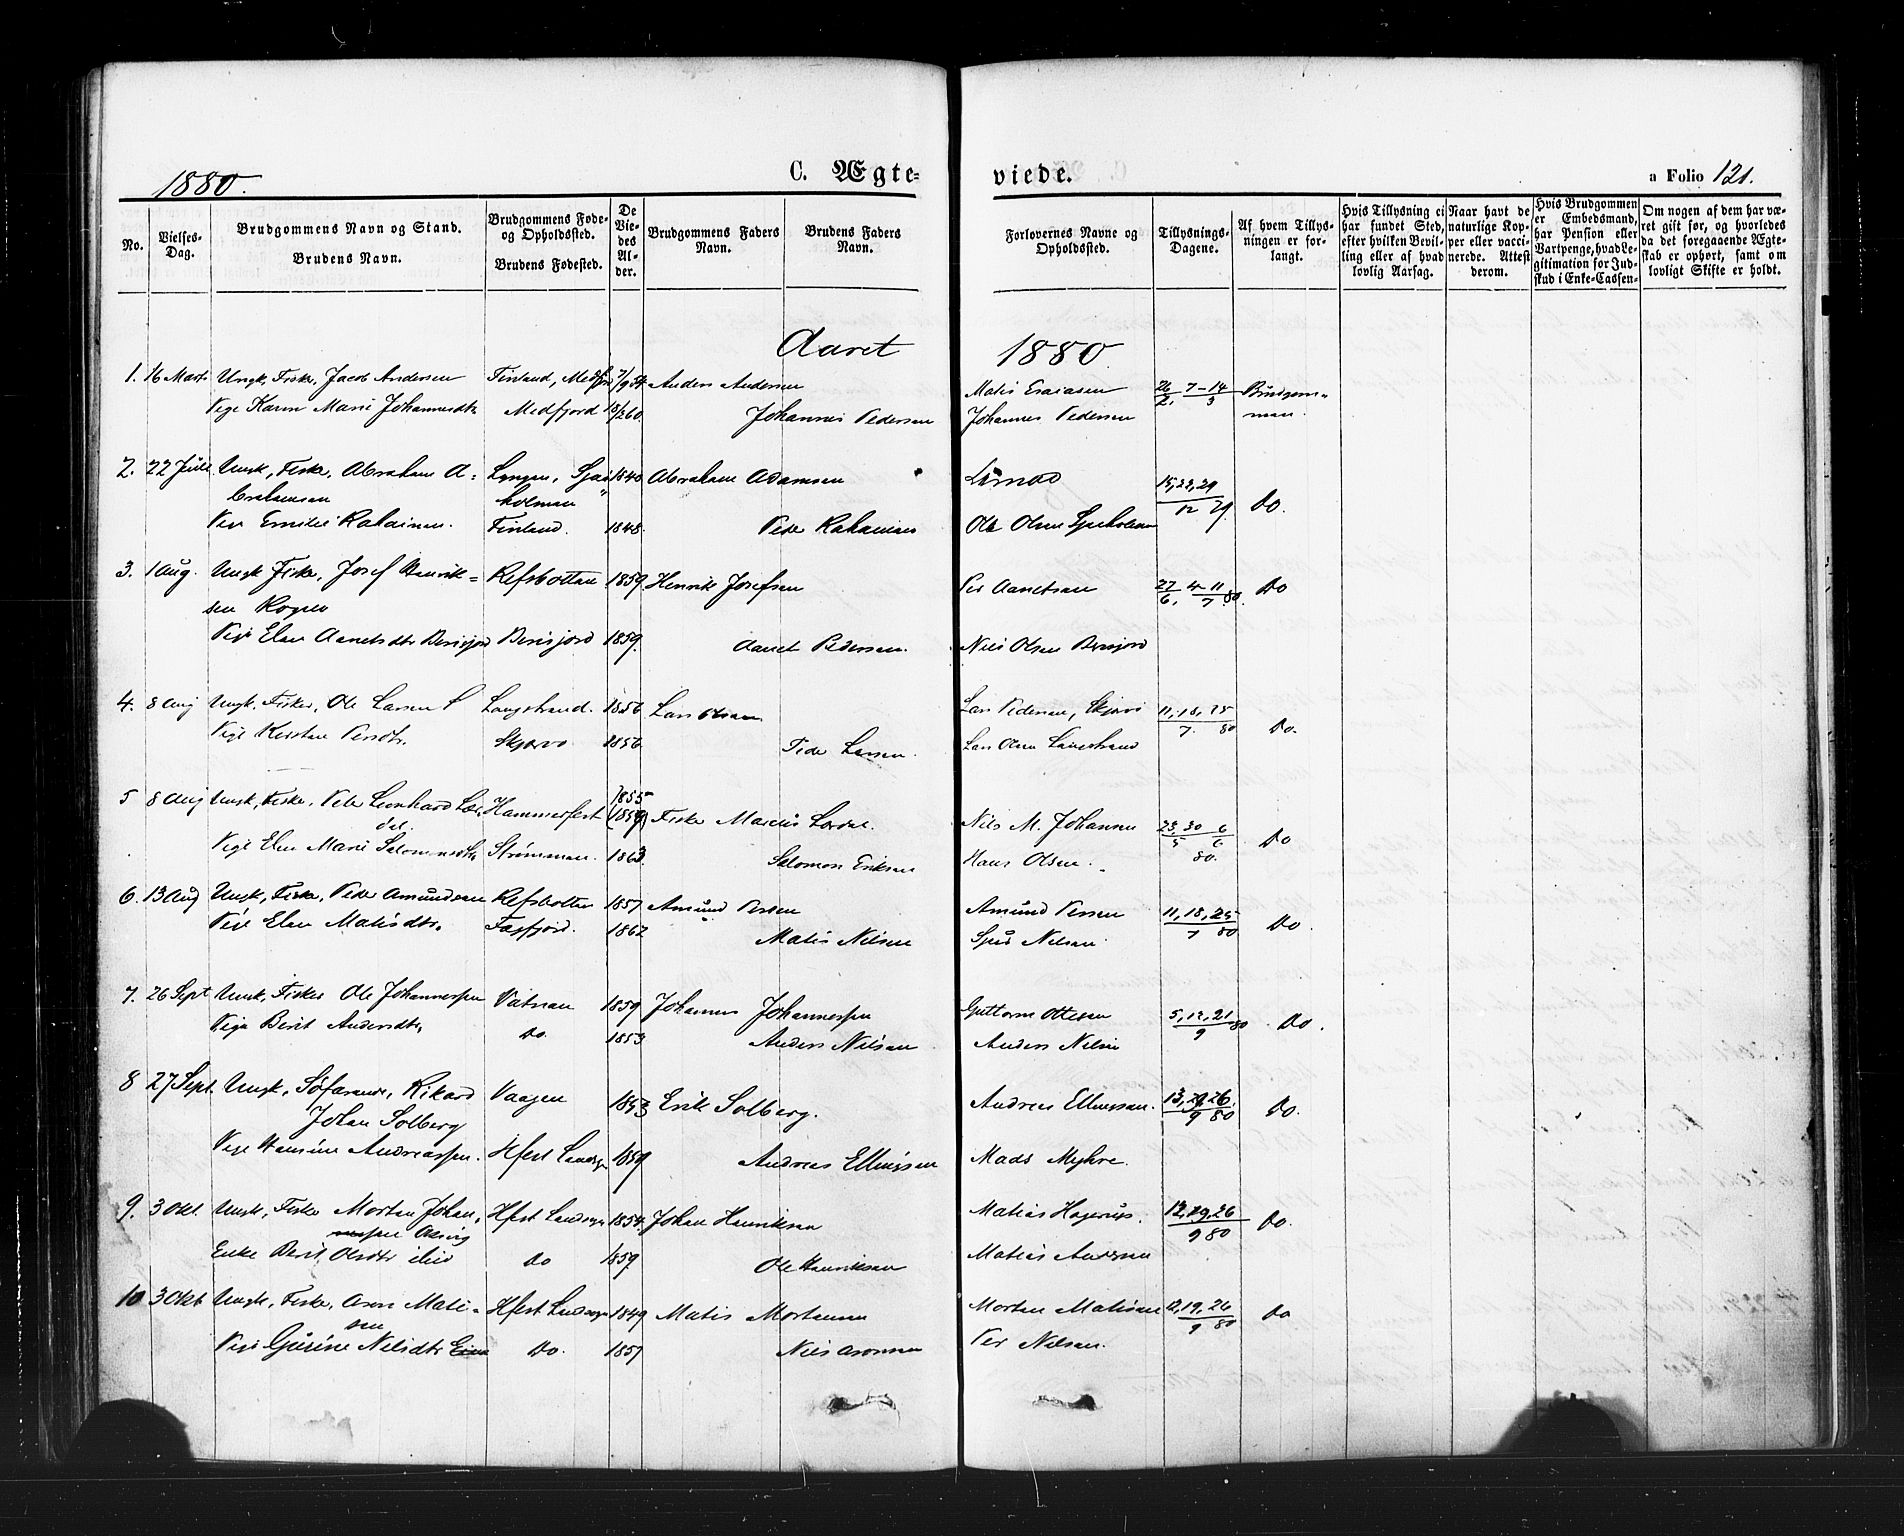 1880.
C. Ægte-
viede.
a Folio 121.
No.
Vielses-Dag.
Brudgommens Navn og Stand.
Brudens Navn.
Brudgommens Føde- og Opholdssted.
Brudens Fødested.
De Viedes Alder.
Brudgommens Faders Navn.
Brudens Faders Navn.
Forlovernes Navne og Opholdssted.
Tillysnings-Dagene.
Af hvem Tillysningen er forlangt.
Hvis Tillysning ei har fundet Sted, efter hvilken Bevilling eller af hvad lovlig Aarsag.
Naar havt de naturlige Kopper eller vaccinerede. Attest derom.
Hvis Brudgommen er Embedsmand, har Pension eller Vartpenge, hvad Legitimation for Indskud i Enke-Cassen-
Om nogen af dem har været gift før, og hvorledes da det foregaaende Ægteskab er ophørt, samt om lovligt Skifte er holdt.
Aaret 1880.
1. 16 Marts Ungk, Fisker, Jacob Andersen Finland, Medfjord Anders Andersen Matis Esaiasen 26/2, 7-14/3 Brudgom-
Pige Karen Marie Johannesdtr Medfjord 18/2 60. Johannes Pedersen Johannes Pedersen man.
2. 22 Juli Ungk, Fisker, Abraham A- Lyngen, 1840 Abraham Adamsen
brahamsen holmen 15,22,29 Do.
Pige Emilie Finland. 1848. Peder Ole Olsen
3. 1 Aug. Ungk Fisker, Josef Henrik- Refsbotten 1859 Henrik Josefsen Per Aanetsen 27/6, 4 11/7 80. Do
sen
Pige Elen Aanetsdtr Beris­fjord Berisfjord 1859. Aanet Pedersen. Nils Olsen Berisfjord
4. 8 Aug Ungk. Fisker, Ole Larsen Langstrand. 1856 Lars Olsen Lars Pedersen, Skjervø 11, 18, 25/7 80 Do.
Pige Kirsten Persdtr. Skjervø 1856 Peder Larsen. Lars Olsen Langstrand
5 8 Aug Ungk, Fisker, Peder Leonhard Hammerfest 1855 (1859) Fisker Nils M. Johannsen 23,30/5 6/6 80. Do
Pige Elen Marie Salomonsdtr Strømmen. 1863 Salomon Eriksen Hans Olsen.
6. 13 Aug Ungk, Fisker, Peder Amundsen Refsbotten 1857 Amund Persen Amund Persen 11, 18, 25/7 80 Do.
Pige Elen Matisdtr. 1862 Matis Nilsen Nilsen.
7. 26 Sept Ungk, Fisker Ole Johannessen Vatnan 1859 Johannes Johannessen Guttorm Ottesen 5, 12, 21/9 80 Do.
Pige Berit Andersdtr, Do. 1853 Anders Nilsen Anders Nilsen
8 27 Sept. Ungk, Søfarende, Rikard Vaagen 1853 Erik Solberg. Andreas Ellingsen. 13, 26/9 80 Do.
Johan Solberg
Pige Hansine Andreassen. Hfest Landsgn 1859 Andreas Ellingsen Mads Myhre.
9. 3 Okt. Ungk, Fisker Morten Johan- Hfest Landsogn 1854. Johan Henriksen Matias Hagerup. 12,19,26/9 80 Do.
Enke Berit Olsdtr Do 1859. Ole Henriksen Matias Andersen
10 3 Okt Ungk, Fisker, Aron Mati- Hfest Landsogn 1849 Matis Mortensen Morten Matisen 12, 19, 26/9 80 Do
sen
Pige Gurine Nilsdtr Do. 1857 Nils Aronsen Per Nilsen.